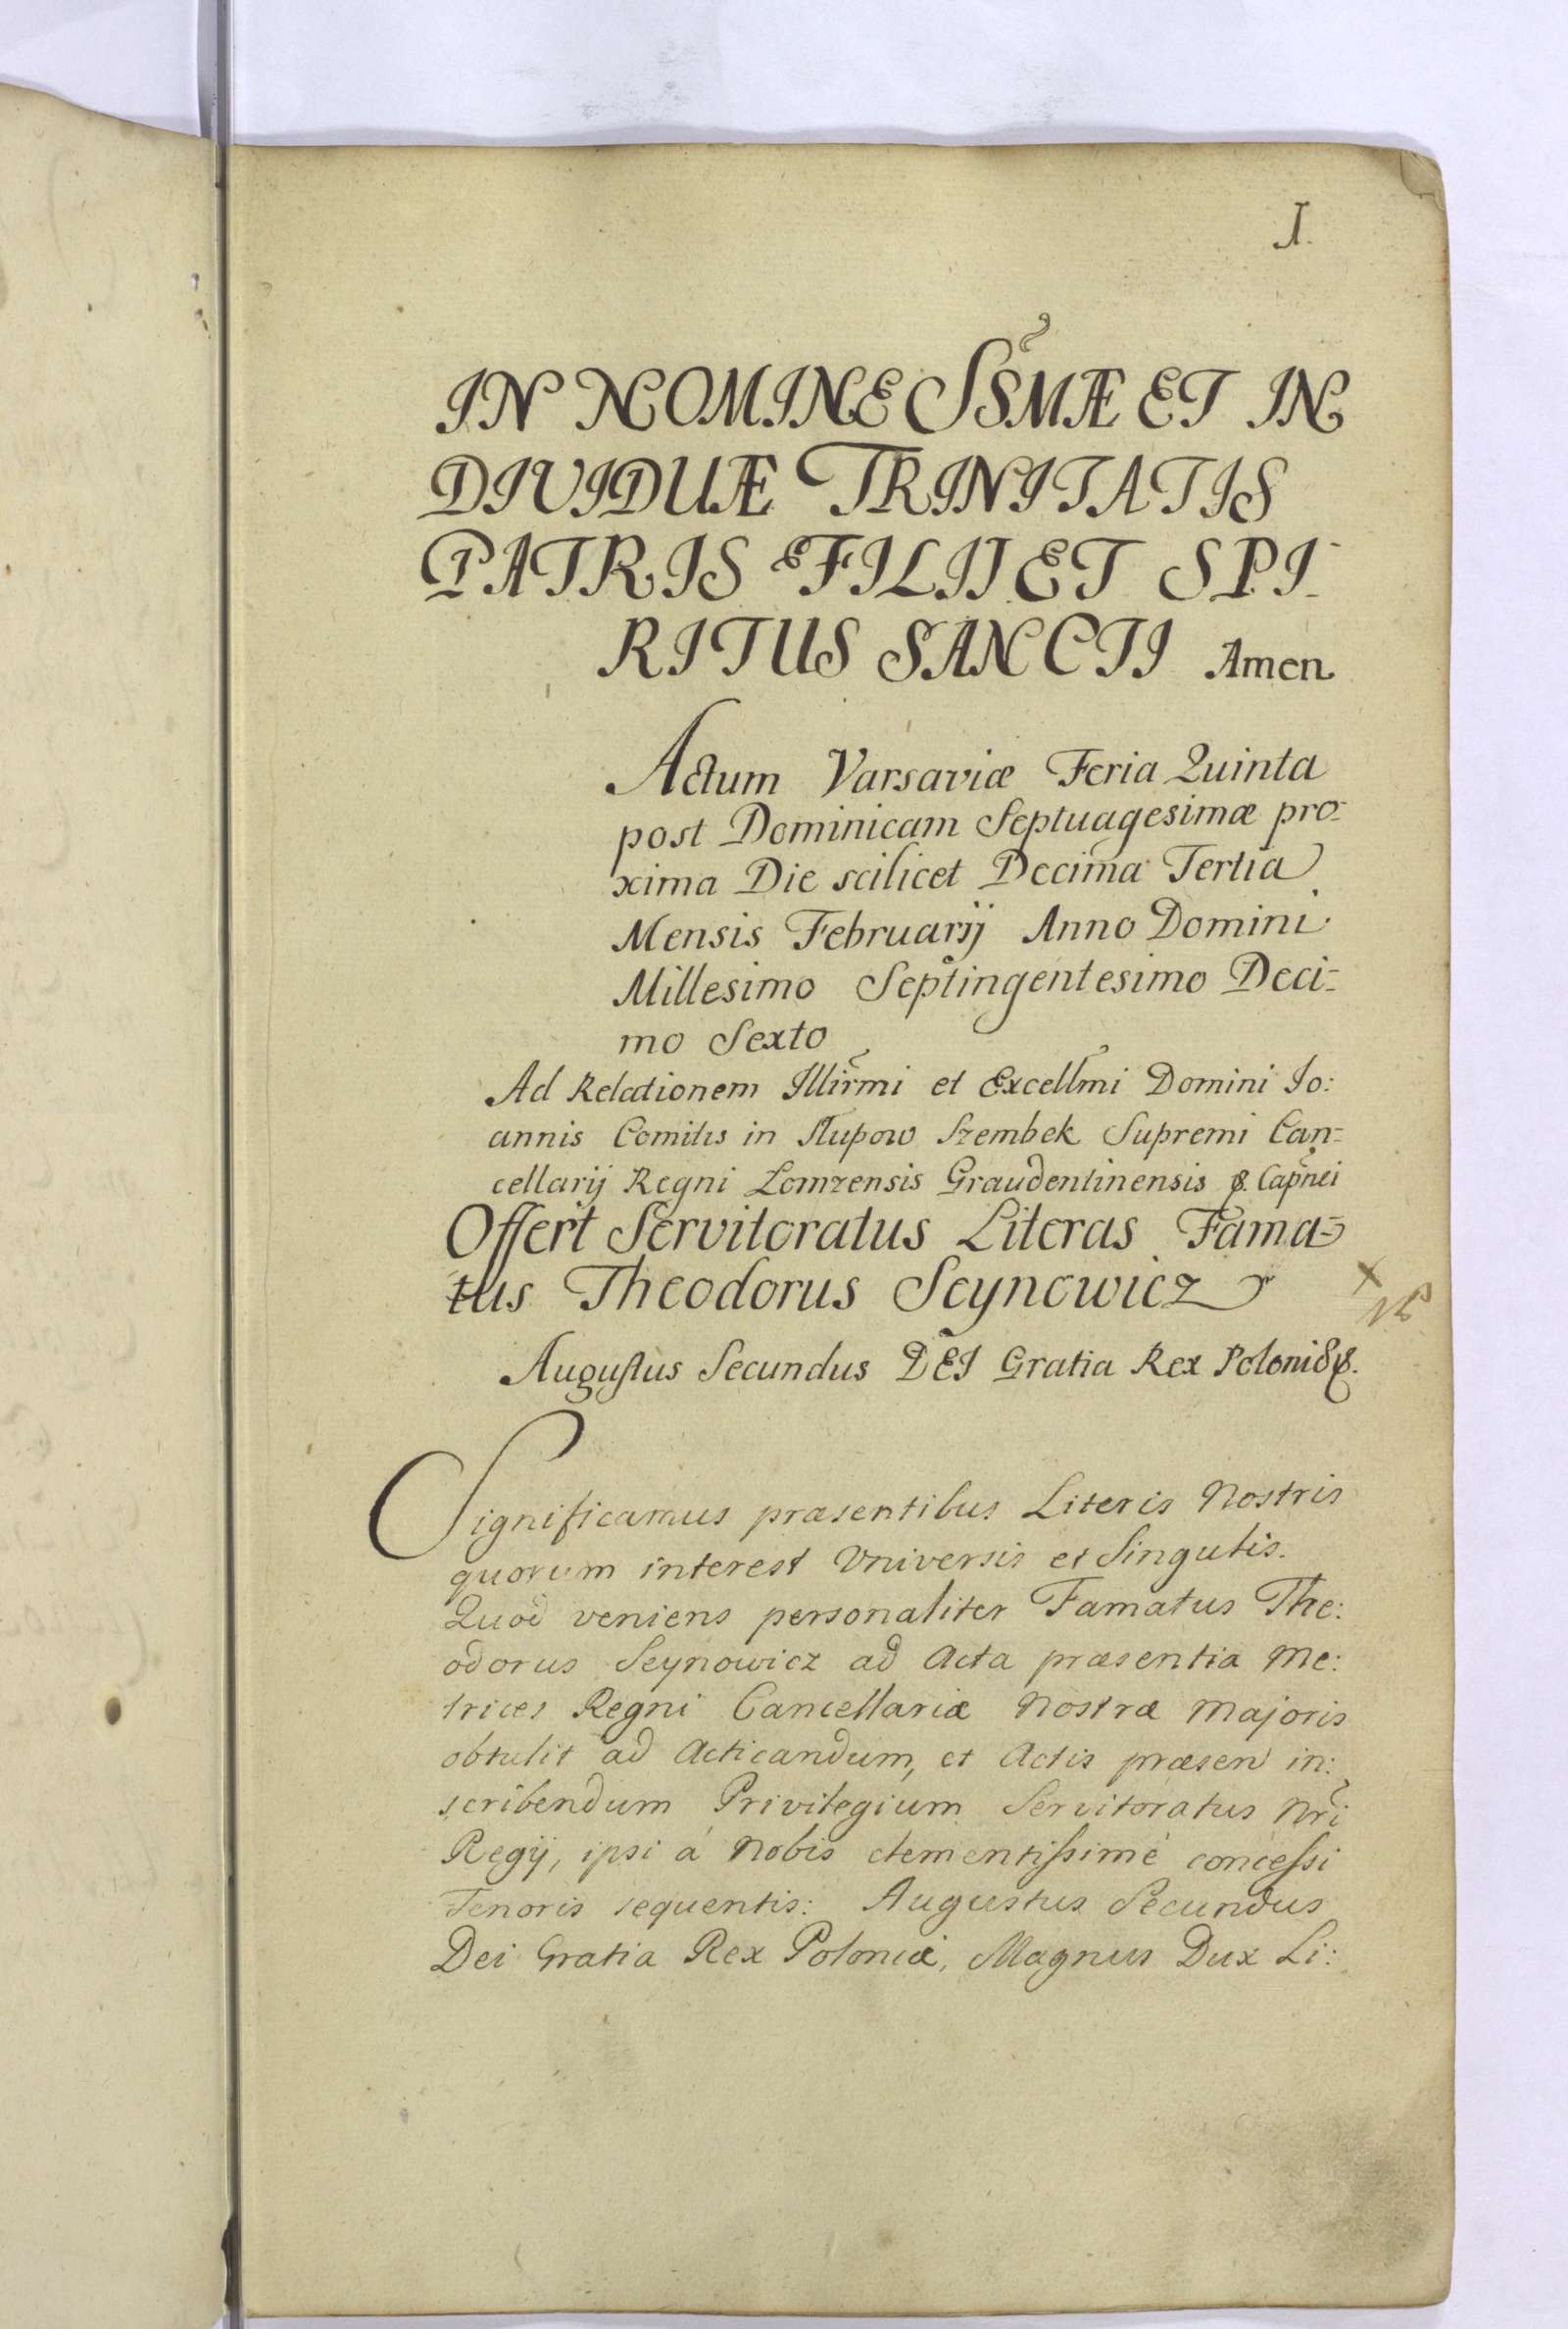 I.
IN NOMINE SSMÆ ET IN
DIVIDUÆ TRINITATIS
PATRIS & FILII ET SPI-
RITUS SANCTI Amen
Actum Varsaviæ Feria Quinta
post Dominicam Septuagesimæ pro-
xima Die scilicet Decima Tertia
Mensis Februarij Anno Domini
Millesimo Septingentesimo Deci-
mo Sexto
Ad Relationem Illirmi et Excellmi Domini Io:
annis Comitis in Słupow Szembek Supremi Can-
cellarij Regni Lomzensis Graudentinensis &. Capnei
Offert Servitoratus Literas Fama-
tus Theodorus Seynowicz
Augustus Secundus DEI Gratia Rex Poloniæ &.
Significamus præsentibus Literis Nostris
quorum interest Universis et Singulis.
Quod veniens personaliter Famatus The:
odorus Seynowicz ad Acta præsentia Me:
trices Regni Cancellariæ Nostræ Majoris
obtulit ad Acticandum, et Actis præsen in:
scribendum Privilegium Servitoratus Nri
Regij, ipsi á Nobis clementissimé concessi
Tenoris sequentis: Augustus Secundus
Dei Gratia Rex Poloniæ, Magnus Dux Li: